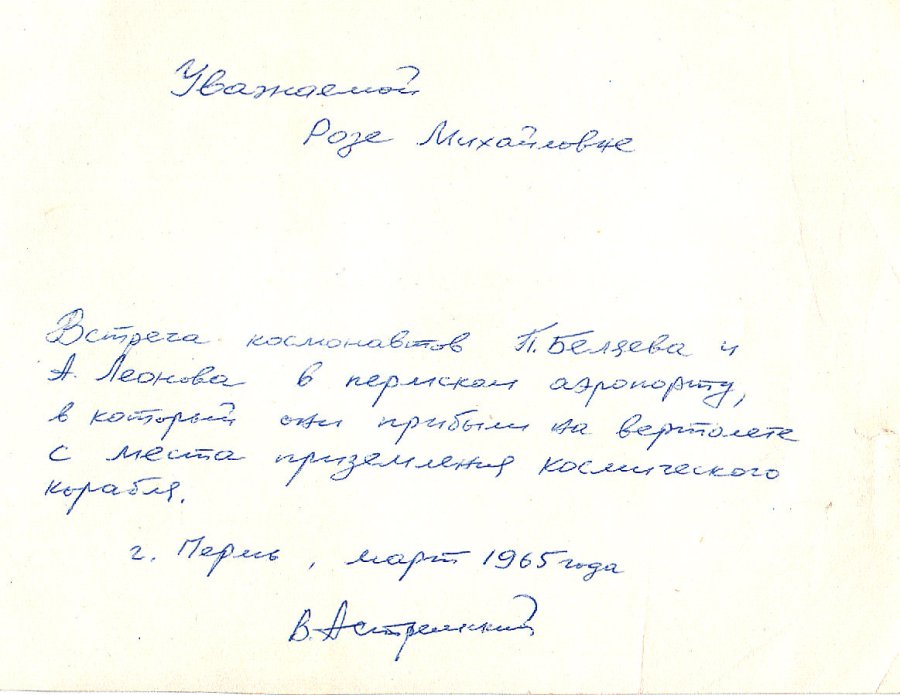 Уважаемой
Розе Михайловне
Встреча космонавтов П. Беляева и
А. Леонова в пермском аэропорту,
в который они прибыли на вертолете
с места приземления космического
корабля.
г. Пермь, март 1965 года
В. Астремский